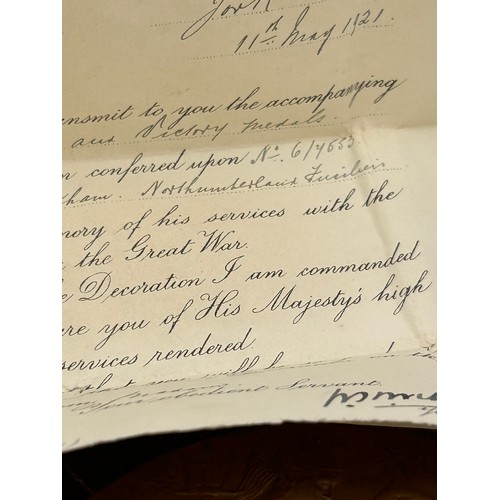 York
11th May 1921.
ansmit to you the accompanying
and Victory medals.
n conferred upon No. 6/4653
ham. Northumberland Fusiliers
mory of his services with the
the Great War.
e Decoration I am commanded
ure you of His Majesty's high
services rendered.
that you will
Your obedient Servant,